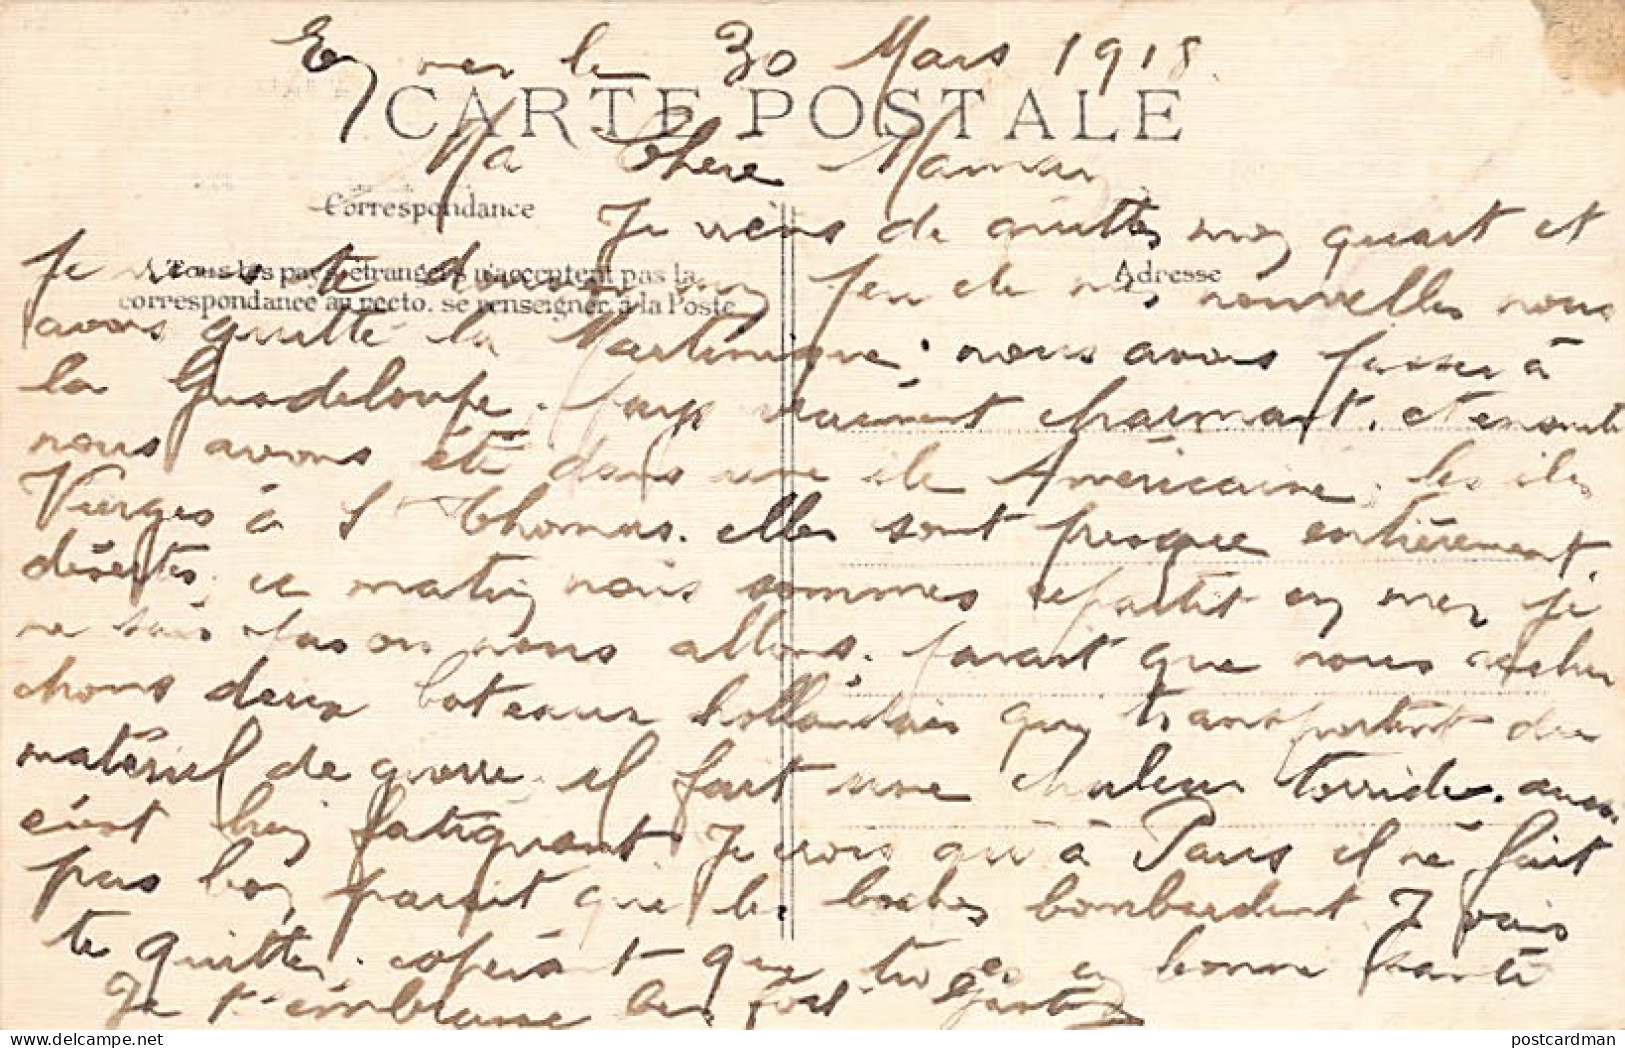 En mer le 30 Mars 1918.
CARTE POSTALE
Ma Chère Maman
Correspondance
Je viens de quitter mon quart et
Adresse
je viens te donner un peu de mes nouvelles nous
Tous les pays étrangers n'acceptent pas la
correspondance au recto. se renseigner à la Poste
avons quitté la Martinique; nous avons passer à
la Guadeloupe. pays vraiment charmant. et ensuite
nous avons été dans une ile Américaine. les iles
Vierges à St Thomas. elles sont presque entièrement
désertes. ce matin nous sommes repartit en mer je
ne sais pas ou nous allons. parait que nous cherchons
chons deux bateaux hollandais qui transportent du
matériel de guerre. il fait une chaleur torride. aussi
c'est bien fatiguant. Je crois qu'à Paris il ne fait
pas bon parait que les boches bombardent. Je vais
te quitter. espérant que tu es en bonne santé
Je t'embrasse bien fort Gaston
postcardman